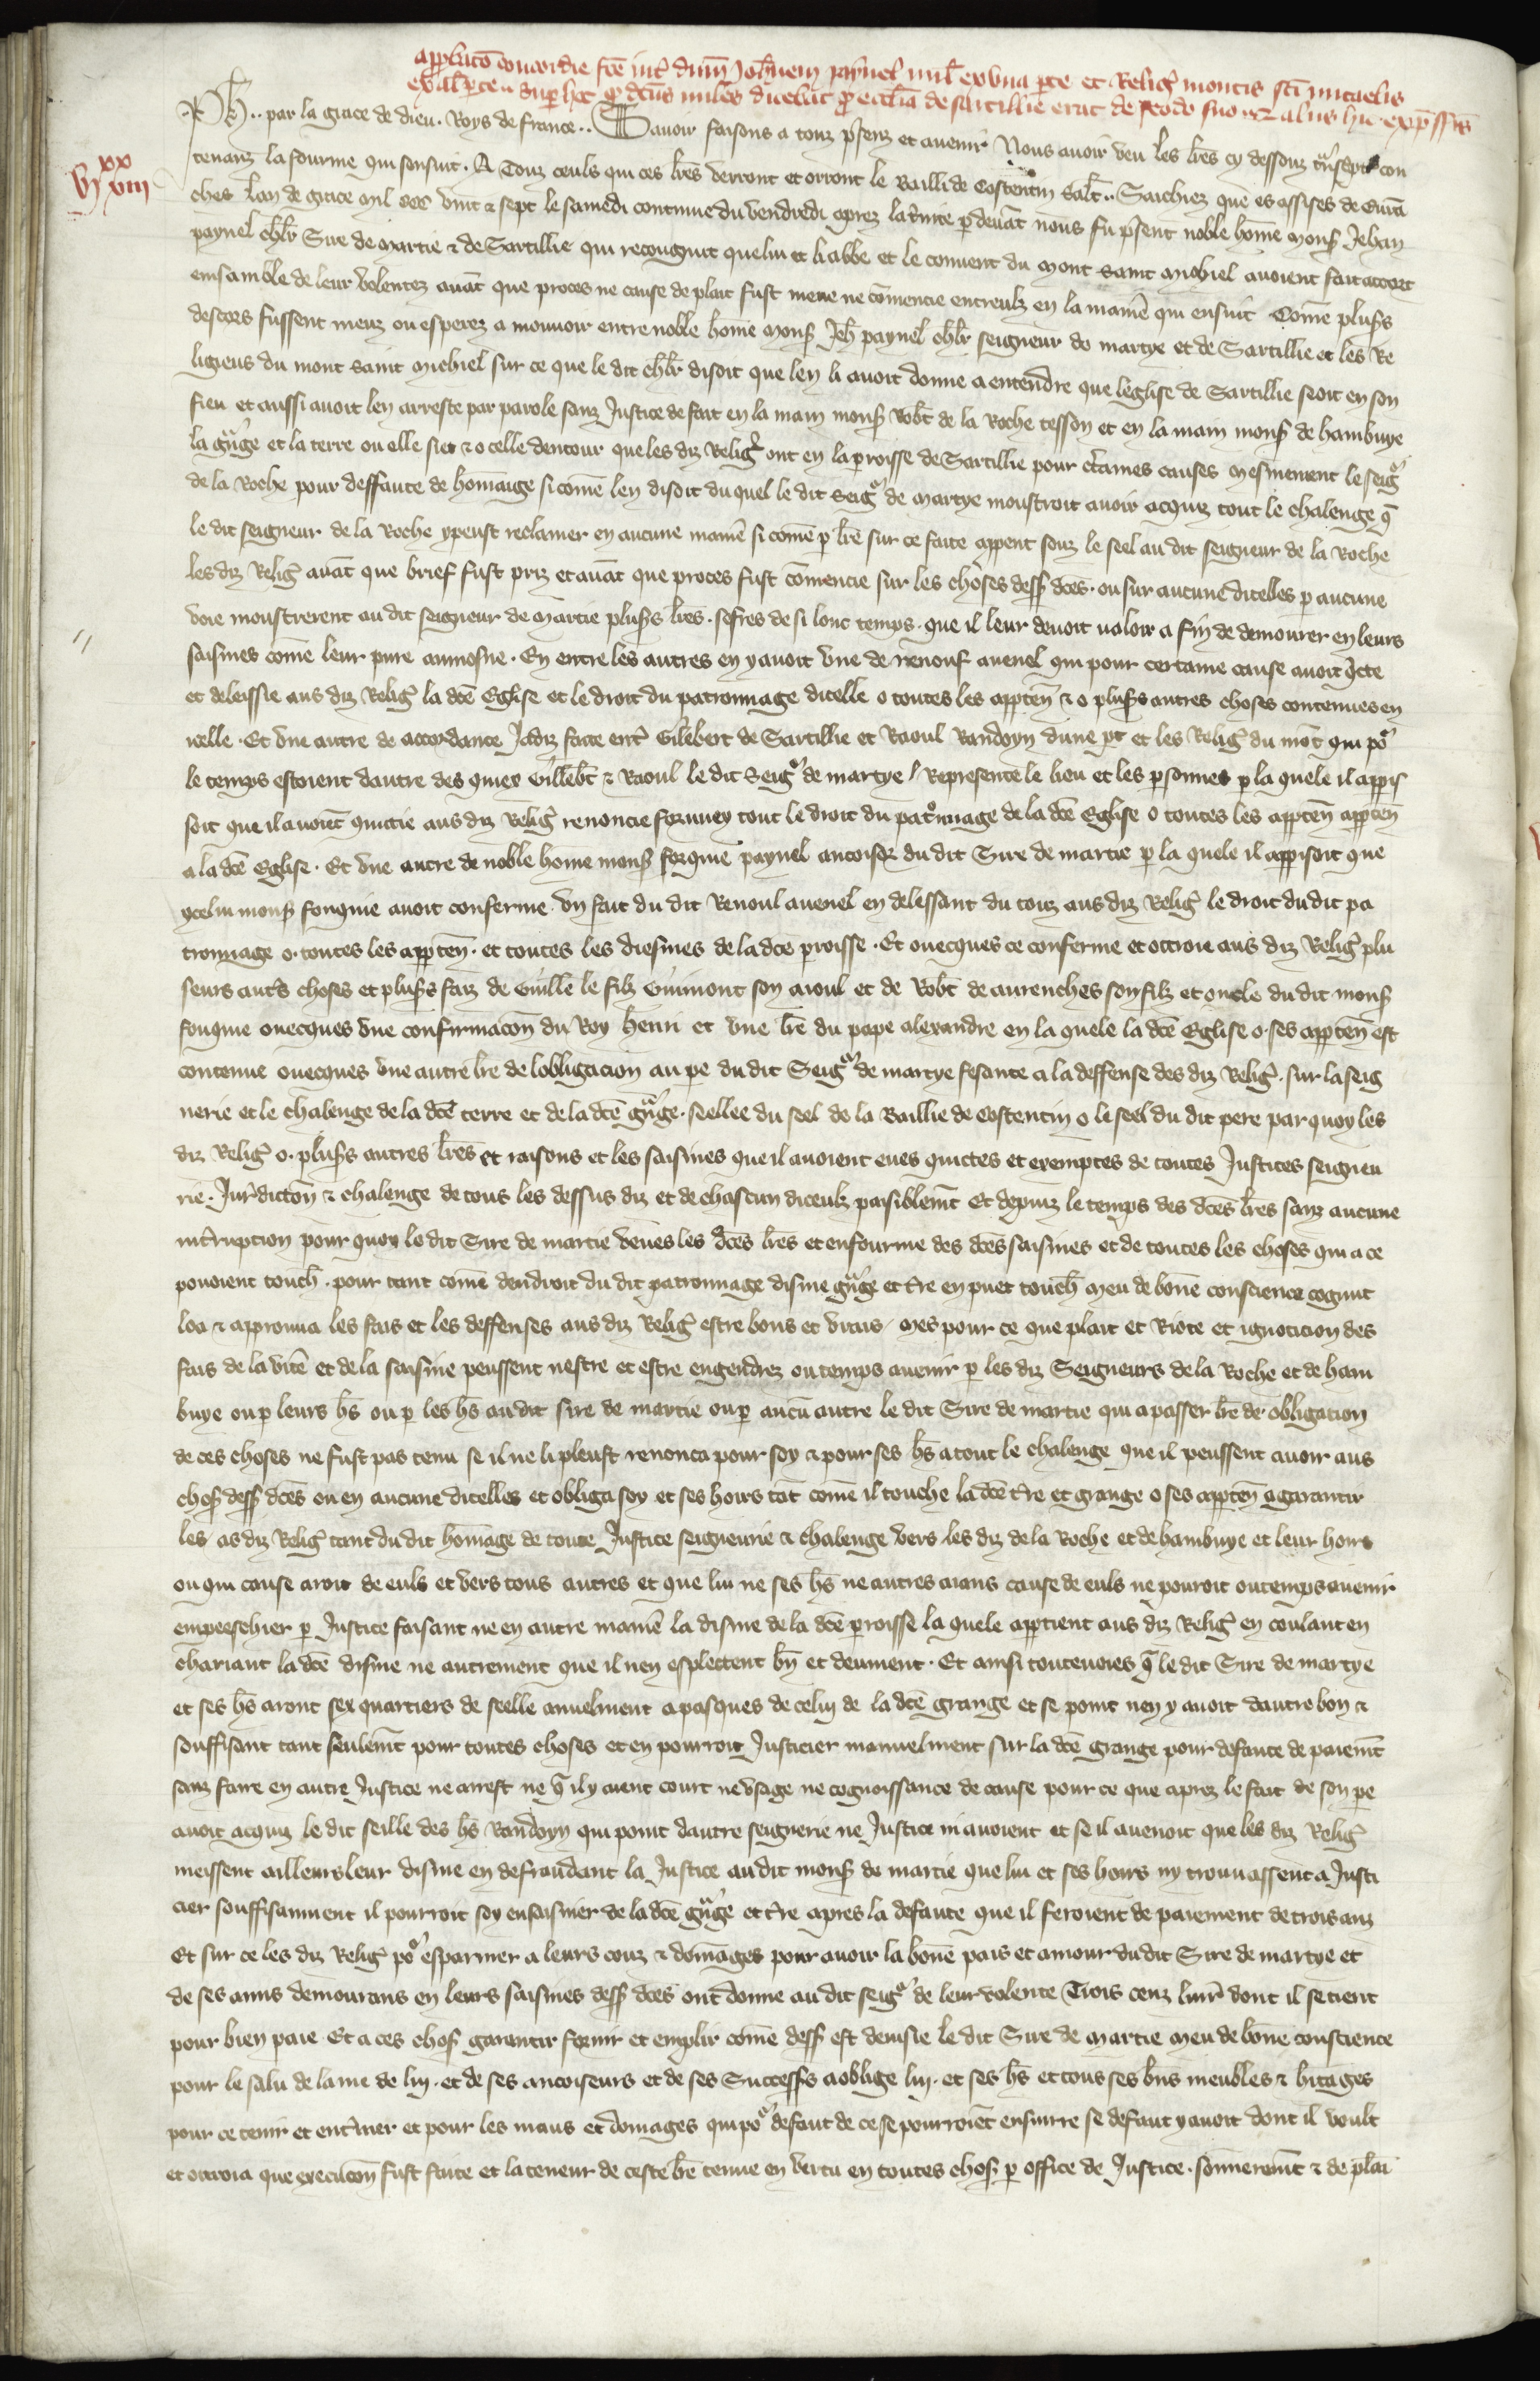 approbatio concordie fce int dnm Johem paynel mil ex una pte et Religios montis sci micaelis
ex alt pte super hoc qd dcus miles dicebat qd ecclia de sartillie erat de feodo suo et aliis hic expssis
Ph.. par la grace de dieu. Roys de france.. Savoir faisons a touz psenz et avenir Nous avoir veu les lres cy dessouz tnscptes con
vi xx xviii
tenanz la fourme qui sensuit. A Touz ceuls qui ces lres verront et orront le Bailli de Costentin Salt.. Saichiez que es assises de Avran
ches lan de grace mil ccc vint & sept le samedi continue du vendredi aprez la trinite p devant nous fu psent noble home mons Jehan
paynel chlr Sire de martie & de Sartillie qui recougnut que lui et li abbe et le convent du mont saint michiel avoient fait accort
ensamble de leur volentez avat que proces ne cause de plait fust meue ne comencie entreulz en la manie qui ensuit Come pluss
descors fussent meuz ou esperez a mouvoir entre noble home mons Jeh paynel chlr seigneur de martye et de Sartillie et les Re
ligieus du mont saint michiel sur ce que le dit chlr disoit que len li avoit donne a entendre que leglise de Sartillie seoit en son
fieu et aussi avoit len arreste par parole sanz Justice de fait en la main mons Robt de la Roche tesson et en la main mons de hambuye
la gnge et la terre ou elle siet & o celle dentour que les diz Relig ont en la proisse de Sartillie pour ctaines causes mesmement le seigr
de la Roche pour deffaute de homaige si come len disoit du quel le dit seigr de martye moustroit avoir acquiz tout le chalenge q
le dit seigneur de la Roche y peust reclamer en aucune manie si come p lre sur ce faite appent souz le seel au dit seigneur de la Roche
les diz Relig avat que brief fust priz et avat que proces fust comencie sur les choses dess dces. ou sur aucune dicelles p aucune
voie moustrerent au dit seigneur de Martie pluss lres. fefres de si lonc temps. que il leur devoit valoir a fin de demourer en leurs
saisines come leur pure aumosne. En entre les autres en y avoit une de renouf avenel qui pour certaine cause avoit qcte
et deleissie aus diz Relig la dce Eglise et le droit du patronnage dicelle o toutes les apptен & o pluss autres choses contenues en
icelle. Et une autre de accordance Jadiz faite ent Gilebert de Sartillie et Raoul Randoyn dune pt et les Relig du mot qui por
le temps estoient dautre des quiex Gillebt & Raoul le dit Seigr de martye / Represente le lieu et les psonnes p la quele il appis
soit que il avoiet quictie aus diz Relig renoncie forjurey tout le droit du patronnage de la dce Eglise o toutes les appten appten
a la dce Eglise. Et une autre de noble home mons fouquie paynel ancoisor du dit Sire de martie p la quele il appisoit que
ycelui mons fouquie avoit conferme un fait du dit Renoul avenel en delessant du tout aus diz Relig le droit du dit pa
tronnage o. toutes les appten. et toutes les diesmes de la dce proisse. Et ovecques ce conferme et ottroie aus diz Relig plu
seurs auts choses et pluss faiz de Guille le filz Guimont son aioul et de Robt de avrenches son filz et oncle du dit mons
fouquie ovecques une confirmacon du Roy henri et une lre du pape alexandre en la quele la dce Eglise o. ses appten est
contenue ovecques une autre lre de lobligacion au pe du dit Seigr de martye fesante a la deffense des diz Relig. sur la seig
nerie et le chalenge de la dce terre et de la dce gnge. seellee du seel de la Baillie de Costentin o le seel du dit pere par quoy les
diz Relig o. pluss autres lres et raisons et les saisines que il avoient eues quictes et exemptes de toutes Justices seigneu
rie. Juridicton & chalenge de tous les dessus diz et de chascun diceulz paisiblemt Et depuiz le temps des dces lres sanz aucune
intrupcion pour quoy le dit Sire de martie veues les dces lres et enfourme des dces saisines et de toutes les choses qui a ce
povoient touch. pour tant come dendroit du dit patronnage disme gnge et tre en puet touch Meu de bone conscience cognut
loa & approuva les fais et les deffenses aus diz Relig estre bons et vrais / mes pour ce que plait et Riote et ignoticion des
fais de la vite et de la saisine peussent nestre et estre engendrez ou temps avenir p les diz Seigneurs de la Roche et de ham
buye ou p leurs hs ou p les hs au dit sire de martie ou p aucu autre le dit Sire de martie qui a passer lre de obligation
de ces choses ne fust pas tenu se il ne li pleust renonca pour soy & pour ses hs a tout le chalenge que il peussent avoir aus
chos dess dces ou en aucune dicelles et obliga soy et ses hoirs tat come il touche la dce tre et grange o ses appten a garantir
les as diz Relig tant du dit homage de toute Justice seigneurie & chalenge vers les diz de la Roche et de hambuye et leur hoirs
ou qui cause aroit de euls et vers tous autres et que lui ne ses hs ne autres aians cause de euls ne pouroit ou temps avenir
empeeschier p Justice faisant ne en autre manie la disme de la dce proisse la quele apptient aus diz Relig en coulant en
chariant la dce disme ne autrement que il nen esplectent bn et deument. Et ainsi toutevoies q le dit Sire de martye
et ses hs aront sex quartiers de seelle anuelment a pasques de celui de la dce grange et se point nen y avoit dautre bon &
souffisant tant seulemt pour toutes choses et en pourroit Justicier manuelment sur la dce grange pour defaute de paiemt
sanz faire en autre Justice ne arrest ne q il y aient court ne usage ne cognoissance de cause pour ce que aprez le fait de son pe
avoit acquiz le dit seille des hs Randoyn qui point dautre seignerie ne Justice ni avoient et se il avenoit que les diz Relig
meissent ailleurs leur disme en defraudant la Justice au dit mons de martie que lui et ses hoirs ny trouvassent a Justi
cier souffisaument il pourroit soy ensaisiner de la dce gnge et tre apres la defaute que il feroient de paiement de trois anz
Et sur ce les diz Relig por esparnier a leurs couz & domages pour avoir la bone pais et amour du dit Sire de martye et
de ses amis demourans en leurs saisines dess dces ont donne au dit seigr de leur volente Trois cenz livr dont il se tient
pour bien paie. Et a ces chos garantir fornir et emplir come dess est devisie le dit Sire de martie meu de bone conscience
pour le salu de lame de lui. et de ses ancoiseurs et de ses Successs a oblige lui. et ses hs et tous ses bns meubles & hitages
pour ce tenir et entiner et pour les maus et domages qui por defaut de ce se pourroiet ensuirre se defaut y avoit dont il voult
et ottroia que execucon fust faite et la teneur de ceste lre tenue en vertu en toutes chos p office de Justice. sommeremt & de plai